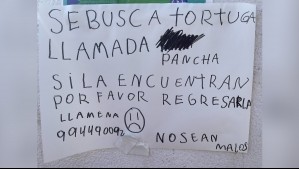 SE BUSCA TORTUGA
LLAMADA
PANCHA
SI LA ENCUENTRAN
POR FAVOR REGRESARLA
LLAMEN A
994490092
NO SEAN
MALOS